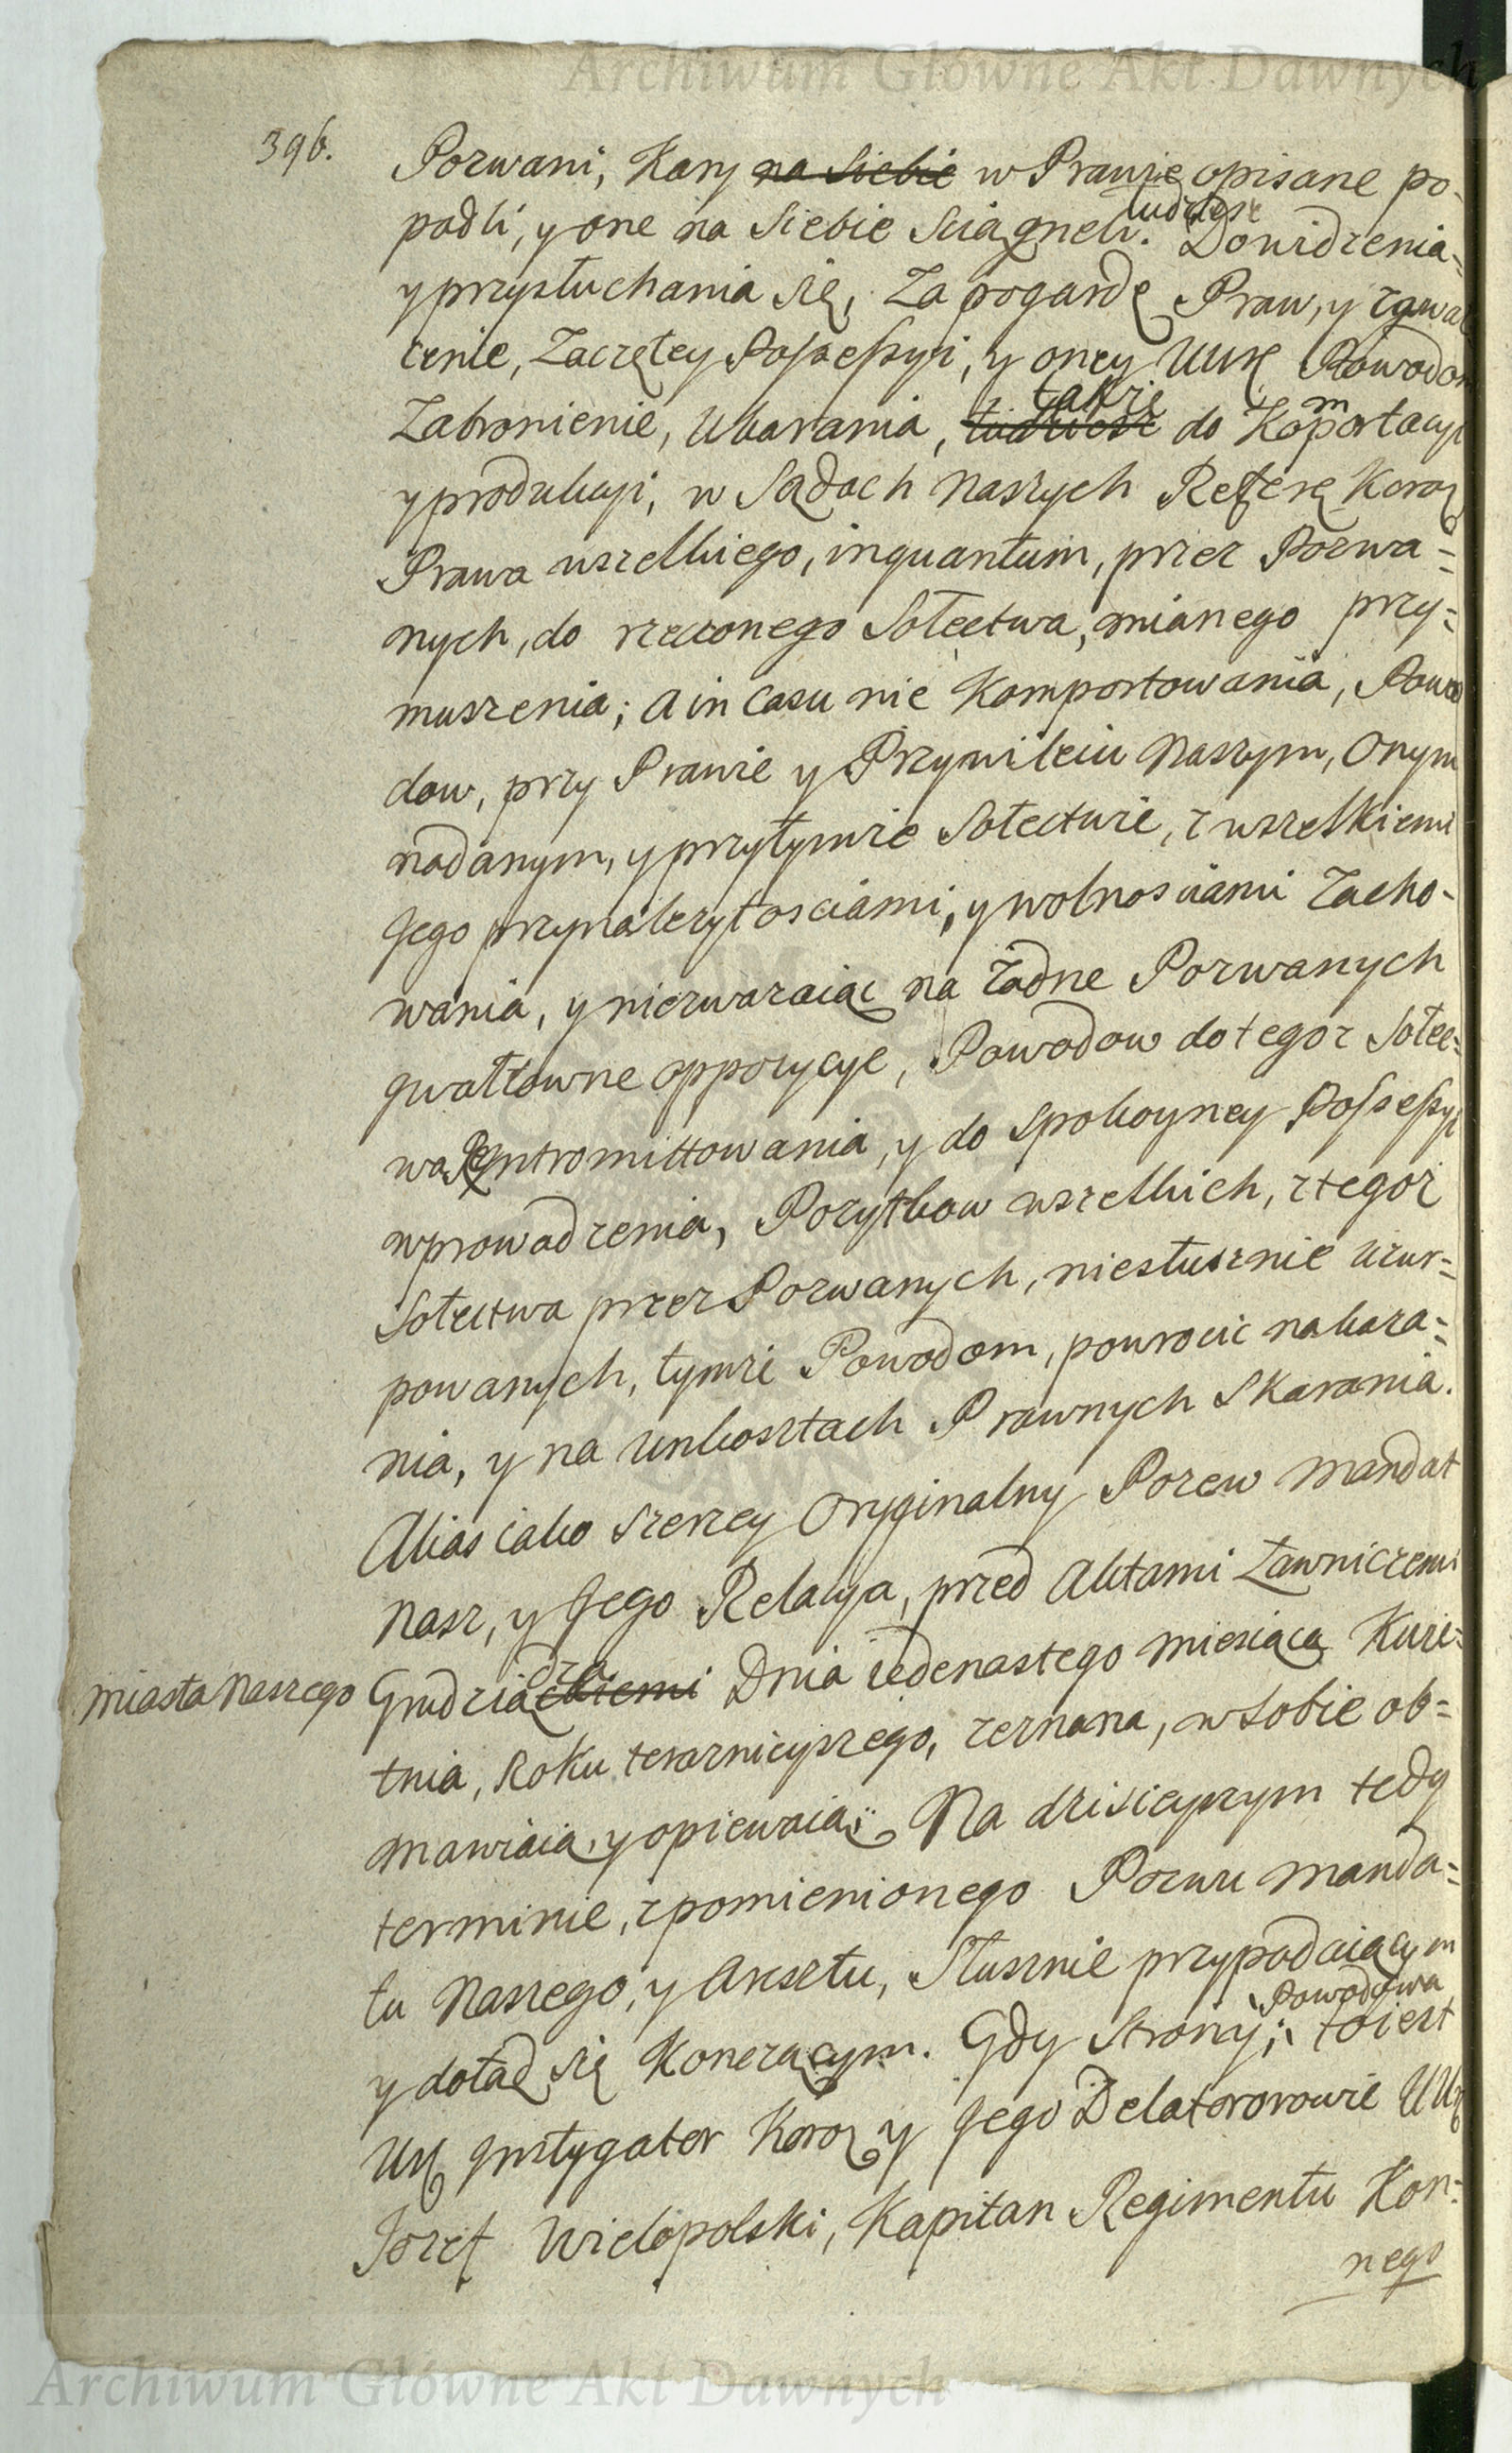 Archiwum Główne Akt Dawnych
396.
Pozwani, Kary na Siebie w Prawie opisane po-
tudziesz
padli, y one na Siebie Sciągneli. Do widzenia=
y przysłuchania się, Za pogardę Praw, y zgwał
cenie, Zaczętey Possessyi, y oney UUr Powodom
także
Zabronienie, Ukarania, tudziesz do Komportacyi
y produkcyi, w Sądach Naszych Refere Koron
Prawa wszelkiego, inquantum, przez Pozwa=
nych, do rzeczonego Sołectwa, mianego przy=
muszenia; a in Casu nie Komportowania, Powo
dow, przy Prawie y Przywileiu Naszym, Onym
nadanym, y przytymże Sołectwie, z wszelkiemi
Jego przynależytosciami, y wolnosciami Zacho-
wania, y niezważaiąc na żadne Pozwanych
gwałtowne oppozycye, Powodow do tegoż Sołec=
wa Reintromittowania, y do Spokoyney Possessyi
wprowadzenia, Pożytkow wszelkich, z tegoż
Sołectwa przez Pozwanych, niesłusznie uzur=
powanych, tymże Powodom, powrocic nakaza=
nia, y na Unkosztach Prawnych Skarania.
Alias iako Szerzey Oryginalny Pozew Mandat
Nasz, y Jego Relacya, przed Aktami Ławniczemi
dza
miasta Naszego Grudziąckiemi Dnia iedenastego Miesiąca Kwie=
tnia, Roku teraznieyszego, zeznana, w Sobie ob=
mawiaią, y opiewaią; Na dzisieyszym tedy
terminie, z pomienionego Pozwu Manda=
tu Naszego, y Aresztu, Słusznie przypadaiącym
Powodowa
y dotąd się Konczącym. Gdy Strony; toiest
Ur Instygator Koron y Jego Delatorowie UUr
Jozef Wielopolski, Kapitan Regimentu Kon=
nego
Archiwum Główne Akt Dawnych